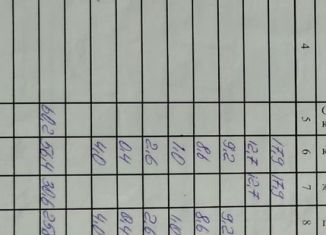 4 5 6 7 8
17,9 17,9
12,7 12,7
9,2 9,2
8,6 8,6
1,0 1,0
2,6 2,6
0,4 0,4
4,0 4,0
60,2 56,4 30,6